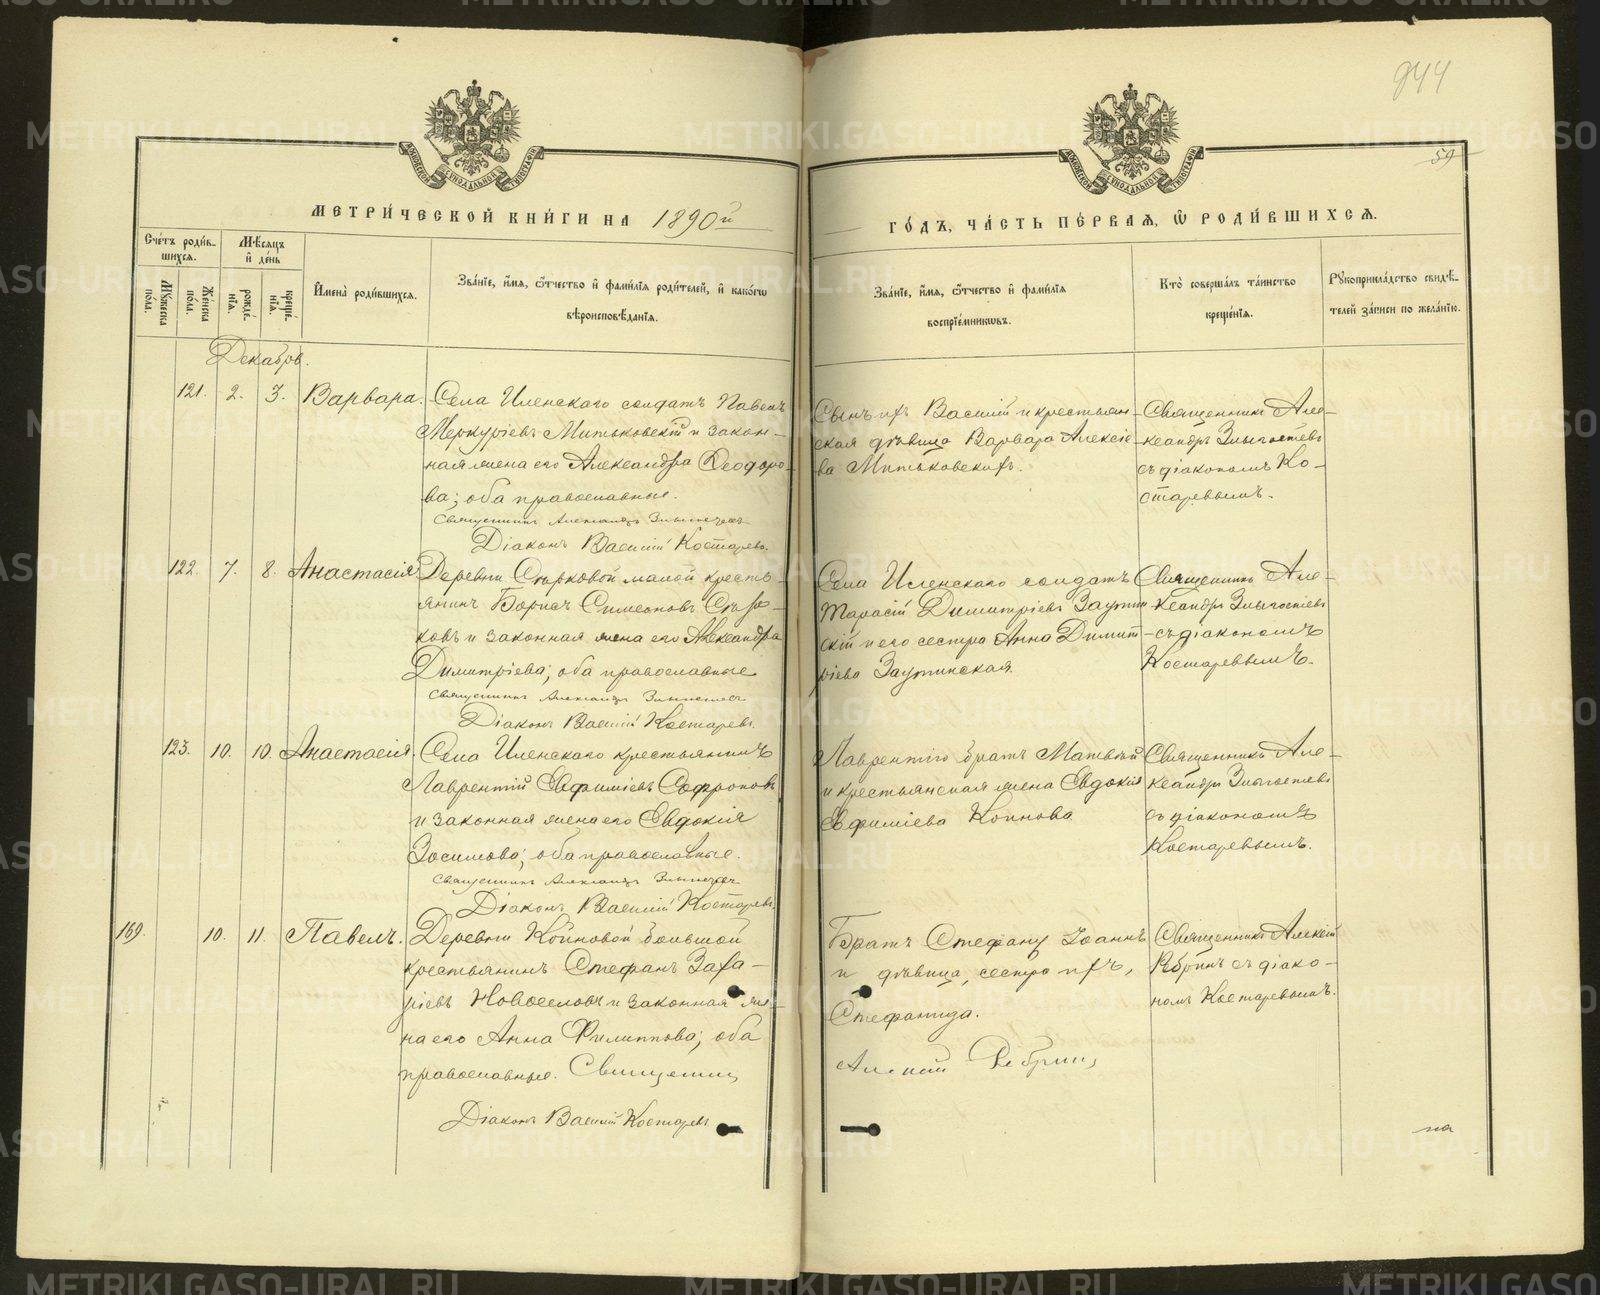 944
59
МОСКОВСКОЙ СѴНОДАЛЬНОЙ ТИПОГРАФІИ
МОСКОВСКОЙ СѴНОДАЛЬНОЙ ТИПОГРАФІИ
МЕТРИ́ЧЕСКОЙ КНИ́ГИ НА 1890й
ГО́ДЪ, ЧА́СТЬ ПЕ́РВАЯ, Ѡ РОДИ́ВШИХСЯ.
Сче́тъ роди́в-
шихся.
Мѣсяцъ
и де́нь
Му́жеска
по́ла.
Же́нска
по́ла.
рожде́-
нія.
креще́-
нія.
И́мена роди́вшихся.
Зва́ніе, и́мя, ѻ́тчество и фами́лія роди́телей, и како́гѡ
вѣроисповѣ́данія.
Зва́ніе, и́мя, ѻ́тчество и фами́лія
воспріе́мниковъ.
Кто̀ соверша́лъ та́инство
креще́нія.
Рукоприкла́дство свидѣ́-
телей за́писи по жела́нію.
Декабрь.
121. 2. 3. Варвара.
Села Иленскаго солдатъ Павелъ
Меркуріевъ Митьковскій и закон-
ная жена его Александра Ѳеодоро-
ва; оба православные.
Священникъ Александръ
Діаконъ Василій Костаревъ.
Сынъ ихъ Василій и крестьян-
ская дѣвица Варвара Алексіе-
ва Митьковскихъ.
Священникъ Але-
ксандръ
съ діакономъ Ко-
старевымъ.
122. 7. 8. Анастасія
Деревни Сѣрковой малой кресть-
янинъ Борисъ Симеоновъ
ковъ и законная жена его Александра
Димитріева; оба православные
Священникъ Александръ
Діаконъ Василій Костаревъ.
Села Иленскаго солдатъ
Тарасій Димитріевъ
скій и его сестра Анна Димит-
ріева
Священникъ Але-
ксандръ
съ діакономъ
Костаревымъ.
123. 10. 10. Анастасія.
Села Иленскаго крестьянинъ
Лаврентій Евфиміевъ Софроновъ
и законная жена его Евдокія
Зосимова; оба православные.
Священникъ Александръ
Діаконъ Василій Костаревъ.
Лаврентію братъ Матвѣй
и крестьянская жена Евдокія
Евфиміева Коинова
Священникъ Але-
ксандръ
съ діакономъ
Костаревымъ.
169. 10. 11. Павелъ.
Деревни Коиновой большой
крестьянинъ Стефанъ Заха-
ріевъ Новоселовъ и законная же-
на его Анна Филиппова; оба
православные. Священникъ
Діаконъ Василій Костаревъ
Братъ Стефану Іоаннъ
и дѣвица, сестра ихъ,
Стефанида.
Алексій Ребринъ
Священникъ Алексій
Ребринъ съ діако-
номъ Костаревымъ.
METRIKI.GASO-URAL.RU